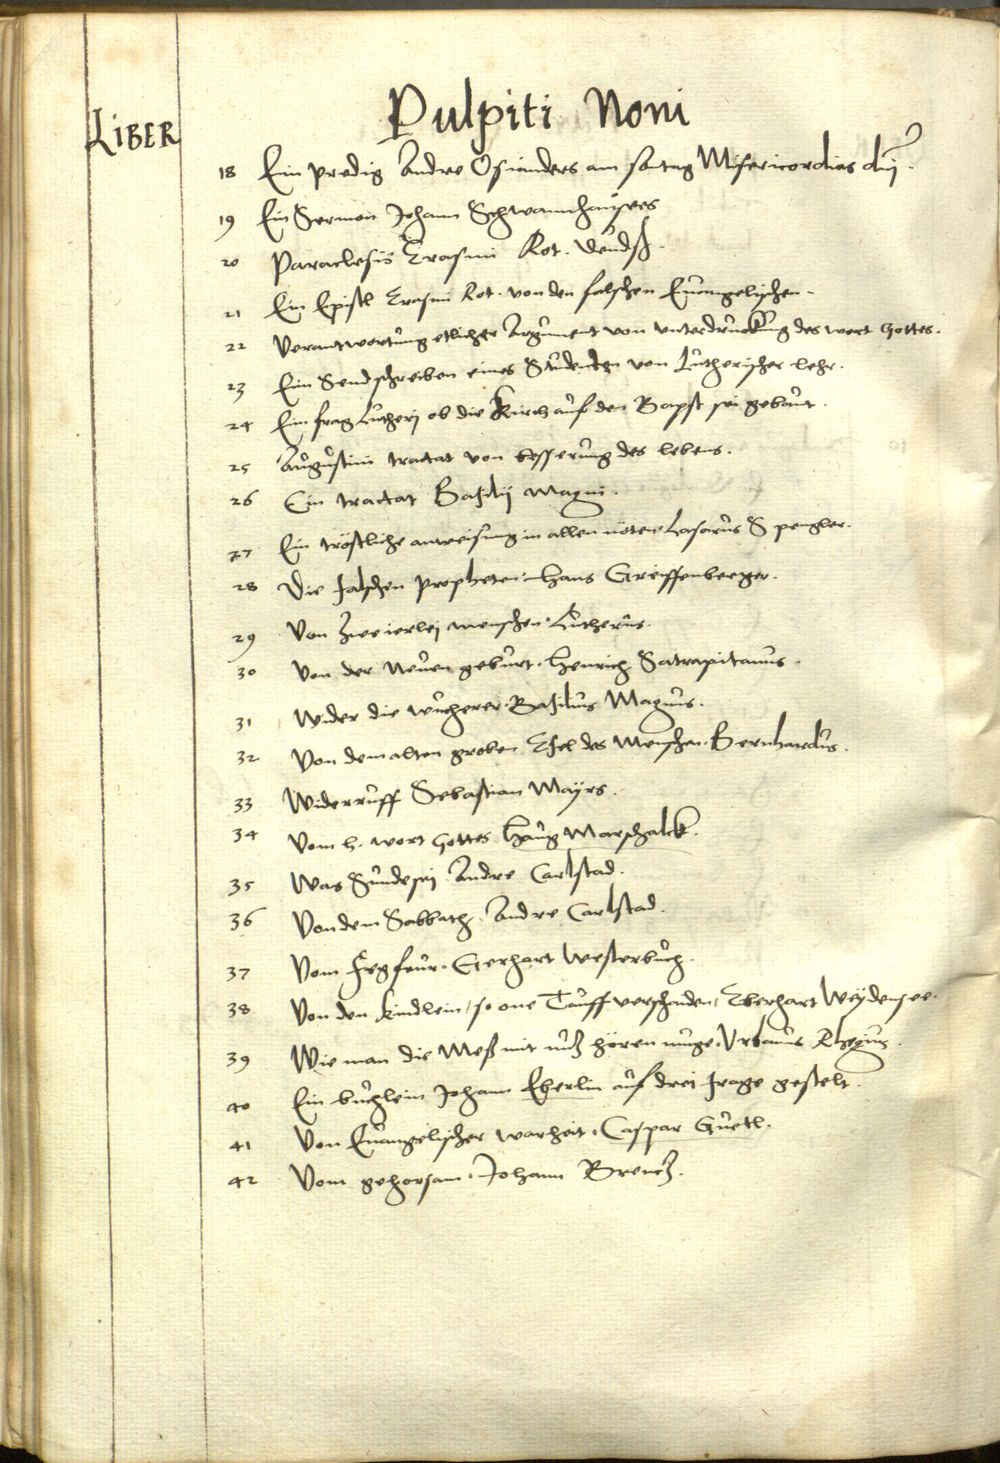 Pulpiti Noni
LIBER
18 Ein predig Andre Osianders am sontag Misericordias dnj.
19 Ein Sermon Johann Schwannhausers
20 Paraclesis Erasmi Rot. deudsch.
21 Ein Epistl Erasmi Rot. von den falschen Evangelischen.
22 Verantwortung etlicher Argument von unterdruckung des wort Gottes.
23 Ein Sendschreiben eines Studenten von Lutherischer lehr.
24 Ein frag Lutherj ob die Kirch auf den Bapst sei gebaut.
25 Augustini tractat von besserung des lebens.
26 Ein tractat Basilij Magni.
27 Ein tröstliche anweisung in allen nöten Lasarus Spengler.
28 Die falschen propheten. Hans Greiffenberger.
29 Von zweierlej menschen. Lutherus.
30 Von der Neuen geburt. Henrich Satrapitanus.
31 Wider die wucherer. Basilius Magnus.
32 Von dem alten groben Esel des Menschen. Bernhardus.
33 Widerruff Sebastian Mayrs.
34 Vom h. wort Gottes. Haug Marschalck.
35 Was Sünde sej Andre Carlstad.
36 Von dem Sabbath. Andre Carlstad.
37 Vom fegfeur. Gerhart Westerbuch.
38 Von den kindlein / so one Tauff verschiden / Eberhart Weydensee.
39 Wie man die Meß mit nutz hören muge. Urbanus Rhegius.
40 Ein buchlein Johann Eberlin auf drei frage gestelt.
41 Von Euangelischer warheit. Caspar Guetl.
42 Vom gehorsam. Johann Brentz.